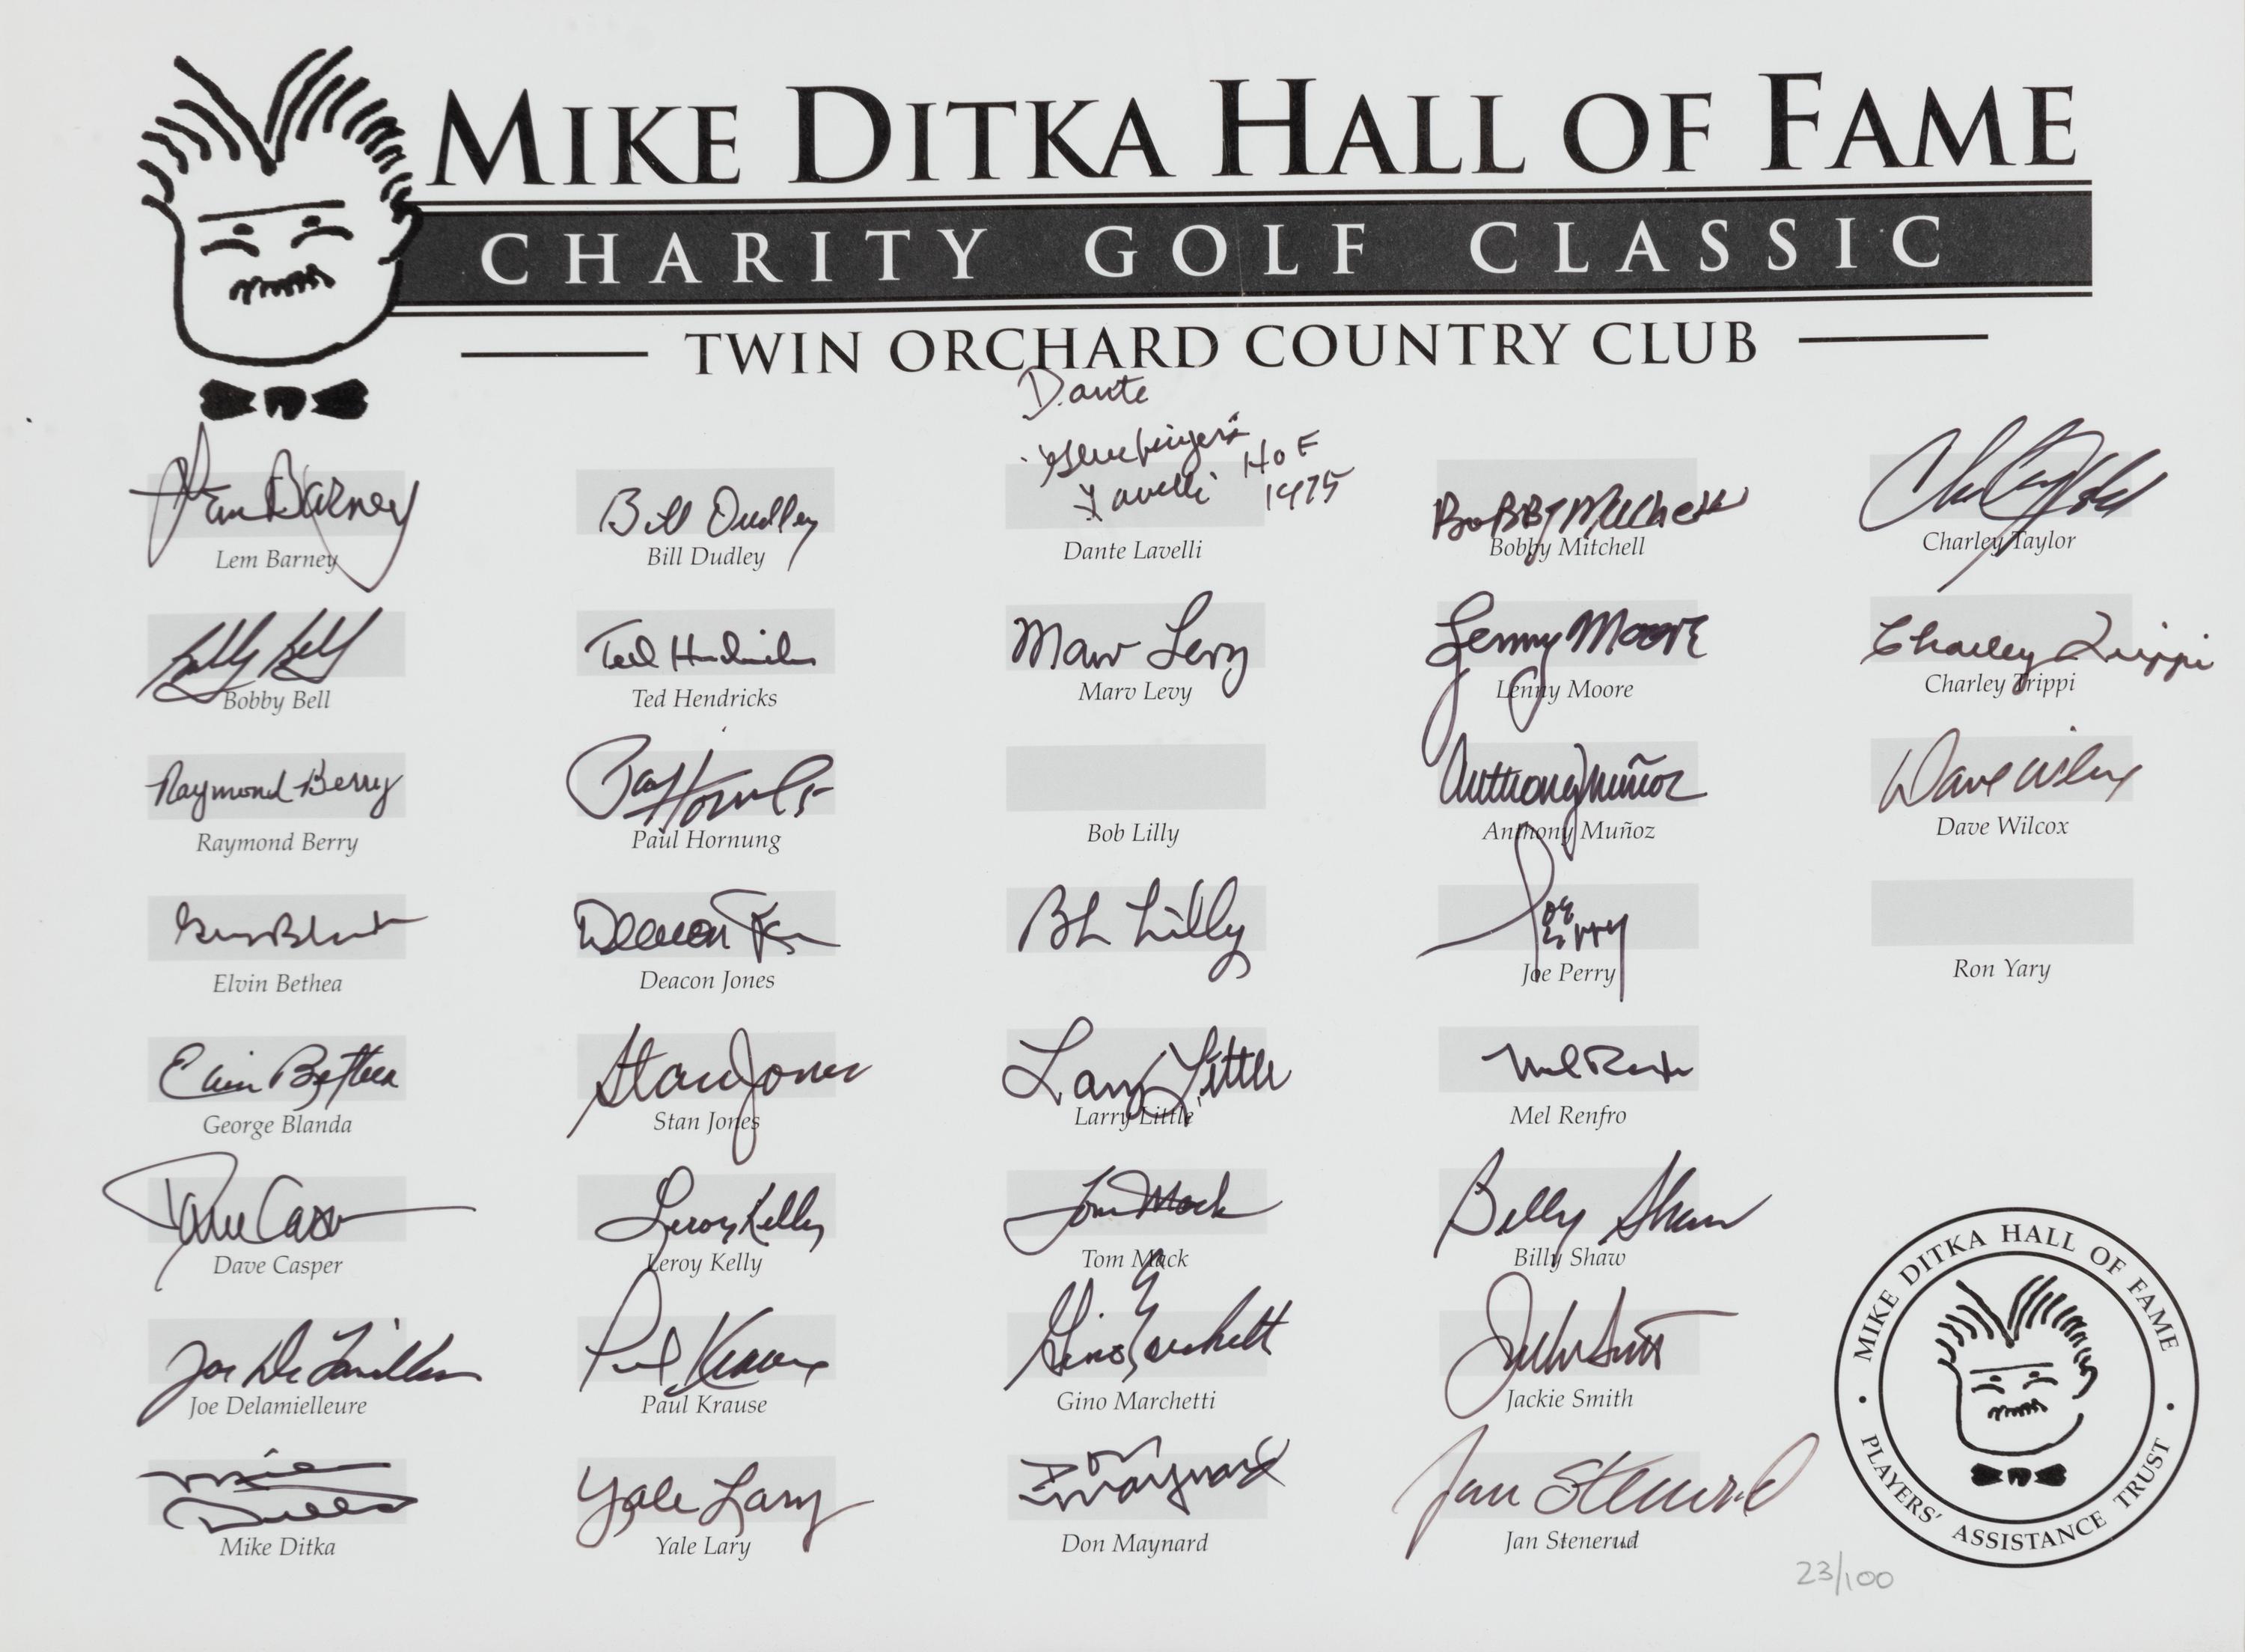 MIKE DITKA HALL OF FAME
CHARITY GOLF CLASSIC
TWIN ORCHARD COUNTRY CLUB
Lem Barney
Lem Barney
Bill Dudley
Bill Dudley
Dante
"Gluefingers"
Lavelli
HOF
1975
Dante Lavelli
Bobby Mitchell
Bobby Mitchell
Charley Taylor
Charley Taylor
Bobby Bell
Bobby Bell
Ted Hendricks
Ted Hendricks
Marv Levy
Marv Levy
Lenny Moore
Lenny Moore
Charley Trippi
Charley Trippi
Raymond Berry
Raymond Berry
Paul Hornung
Paul Hornung
Bob Lilly
Anthony Muñoz
Anthony Muñoz
Dave Wilcox
Dave Wilcox
George Blanda
Elvin Bethea
Deacon Jones
Deacon Jones
Bob Lilly
Joe
Perry
Joe Perry
Ron Yary
Elvin Bethea
George Blanda
Stan Jones
Stan Jones
Larry Little
Larry Little
Mel Renfro
Mel Renfro
Dave Casper
Dave Casper
Leroy Kelly
Leroy Kelly
Tom Mack
Tom Mack
Billy Shaw
Billy Shaw
Joe DeLamielleure
Joe Delamielleure
Paul Krause
Paul Krause
Gino Marchetti
Gino Marchetti
Jackie Smith
Jackie Smith
Mike
Ditka
Mike Ditka
Yale Lary
Yale Lary
Don
Maynard
Don Maynard
Jan Stenerud
Jan Stenerud
MIKE DITKA HALL OF FAME
• PLAYERS' ASSISTANCE TRUST •
23/100